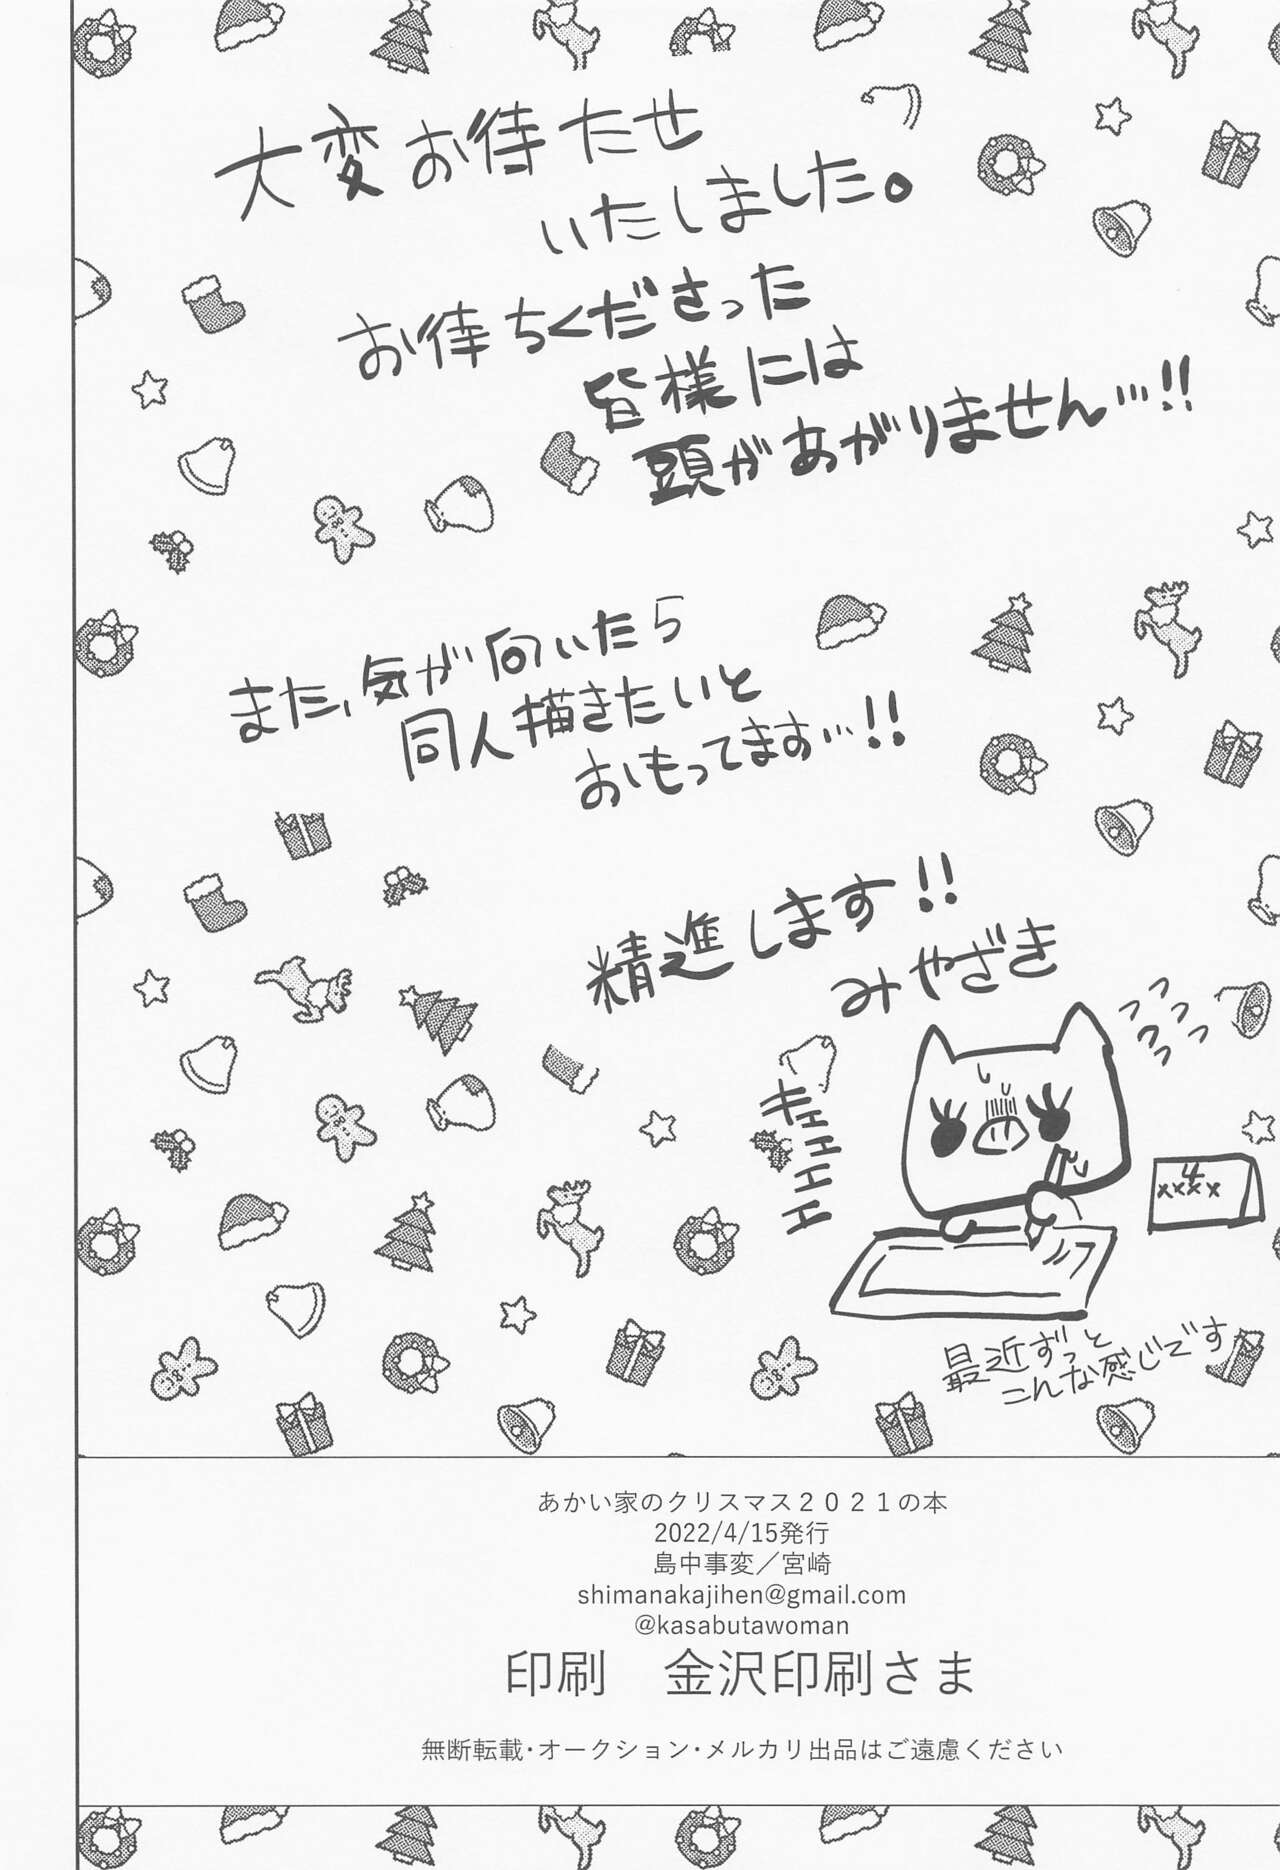 大変お待たせ
いたしました。
お待ちくださった
皆様には
頭があがりません…!!
また、気が向いたら
同人描きたいと
おもってます…!!
精進します!!
みやざき
フフフフフフ
キエエエエエ
4
xxxx
最近ずっと
こんな感じです
あかい家のクリスマス2021の本
2022/4/15発行
島中事変／宮崎
shimanakajihen@gmail.com
@kasabutawoman
印刷　金沢印刷さま
無断転載・オークション・メルカリ出品はご遠慮ください